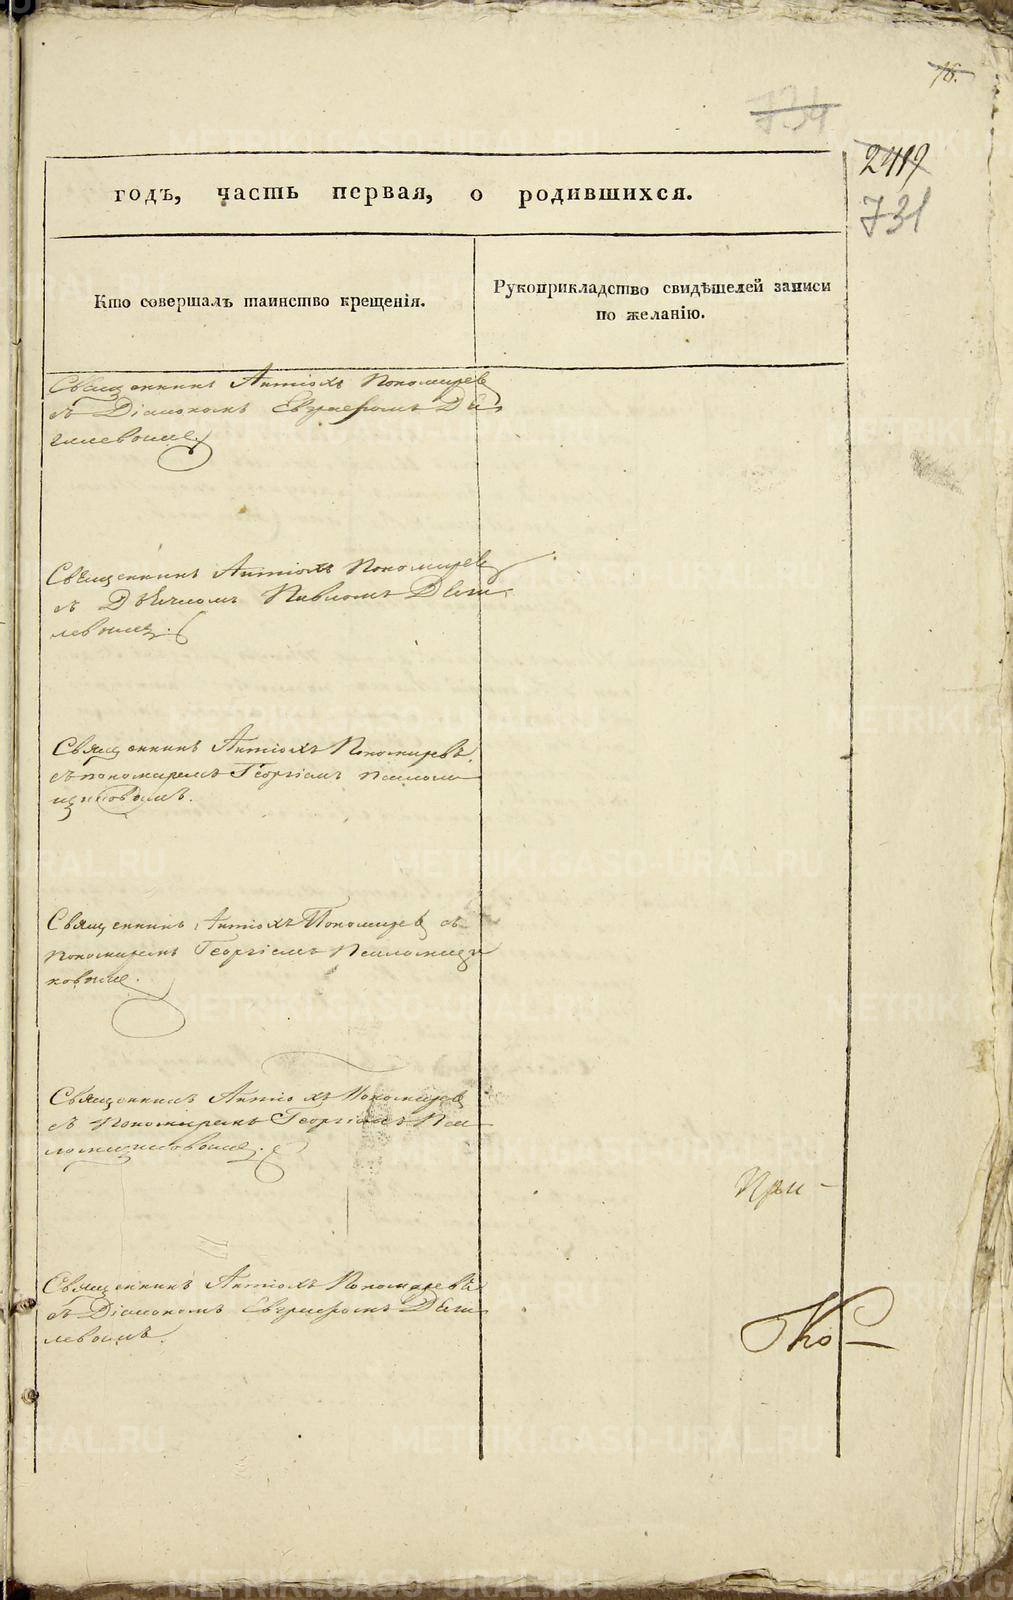 16.
734
2419
731
годъ, часть первая, о родившихся.
Кто совершалъ таинство крещенія.
Рукоприкладство свидѣтелей записи
по желанію.
Священникъ Антіохъ Пономарев
съ Діакономъ
Священникъ Антіохъ Пономарев
съ Дьячкомъ Павломъ
Священникъ Антіохъ Пономаревъ
съ пономаремъ Георгіемъ
Священникъ Антіохъ Пономарев съ
пономаремъ Георгіемъ
ковыме.
Священникъ Антіохъ Пономарев
съ Пономаремъ Георгіемъ
При-
Священникъ Антіохъ Пономаревъ
съ Діакономъ
METRIKI.GASO-URAL.RU